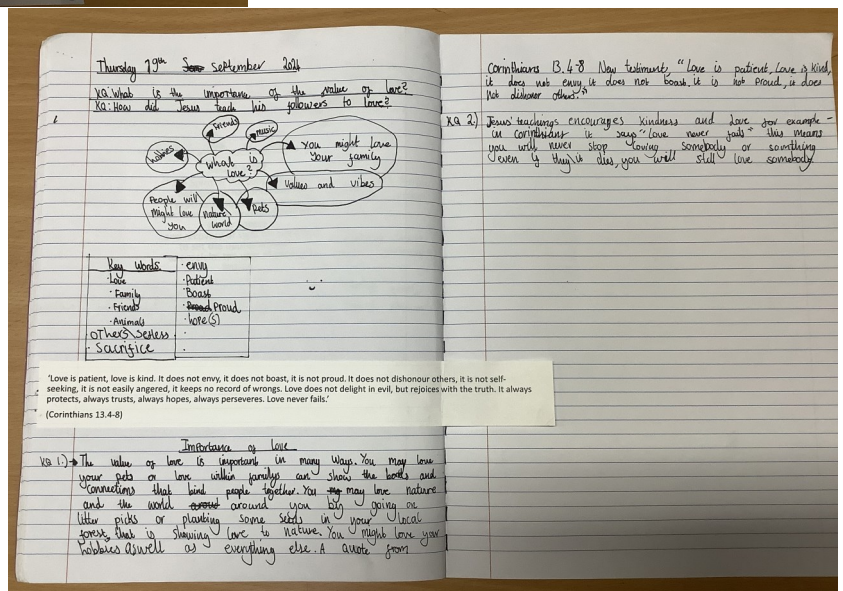 Thursday 19th September 2024
KQ: What is the importance of the value of love?
KQ: How did Jesus teach his followers to love?
Friends
music
hobbies
What is
love?
You might love
your family
Values and vibes
People will
might love
you
Nature
world
pets
Key words:
· Love
· Family
· Friends
· Animals
others
· Sacrifice
· envy
· Patient
Boast
Proud
· hope(s)
'Love is patient, love is kind. It does not envy, it does not boast, it is not proud. It does not dishonour others, it is not self-
seeking, it is not easily angered, it keeps no record of wrongs. Love does not delight in evil, but rejoices with the truth. It always
protects, always trusts, always hopes, always perseveres. Love never fails.'
(Corinthians 13.4-8)
Importance of Love
KQ 1.) → The value of love is important in many ways. You may love
your pets or love within familys can show the bonds and
connections that bind people together. You may love nature
and the world around you by going on
litter picks or planting some seeds in your local
forest, that is showing love to nature. You might love your
hobbies aswell as everything else. A quote from
Corinthians 13.4-8 New testiment, "Love is patient, Love is kind,
it does not envy, it does not boast, it is not proud, it does
not dishonor others."
KQ 2.) Jesus' teachings encourages kindness and love for example -
in corinthians it says "love never fails" this means
you will never stop loving somebody or something
even if they die, you will still love somebody